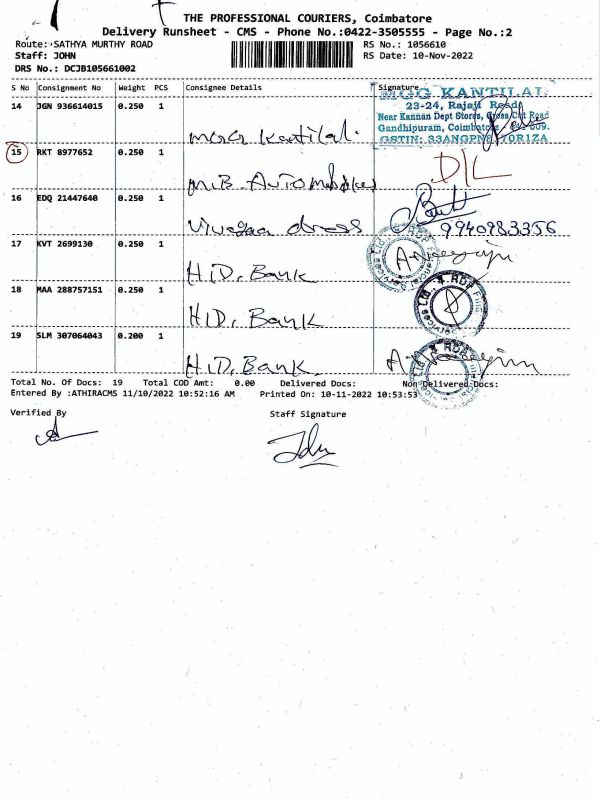 THE PROFESSIONAL COURIERS, Coimbatore
Delivery Runsheet - CMS - Phone No.:0422-3505555 - Page No.:2
Route: SATHYA MURTHY ROAD RS No.: 1056610
Staff: JOHN RS Date: 10-Nov-2022
DRS No.: DCJB105661002
S No Consignment No Weight PCS Consignee Details Signature
MGG KANTILAL
14 JGN 936614015 0.250 1 23-24, Rajaji Road
Near Kannan Dept Stores, Cross Cut Road
Gandhipuram, Coimbatore
GSTIN:
MGG Kantilal.
15 RKT 8977652 0.250 1 D/L
M.B. Automobiles
16 EDQ 21447640 0.250 1
Vivagaa dress 9940983356
17 KVT 2699130 0.250 1
H.D. Bank
18 MAA 288757151 0.250 1
H.D. Bank
19 SLM 307064043 0.200 1
H.D. Bank.
Total No. Of Docs: 19 Total COD Amt: 0.00 Delivered Docs: Non Delivered Docs:
Entered By :ATHIRACMS 11/10/2022 10:52:16 AM Printed On: 10-11-2022 10:53:53
Verified By Staff Signature
John